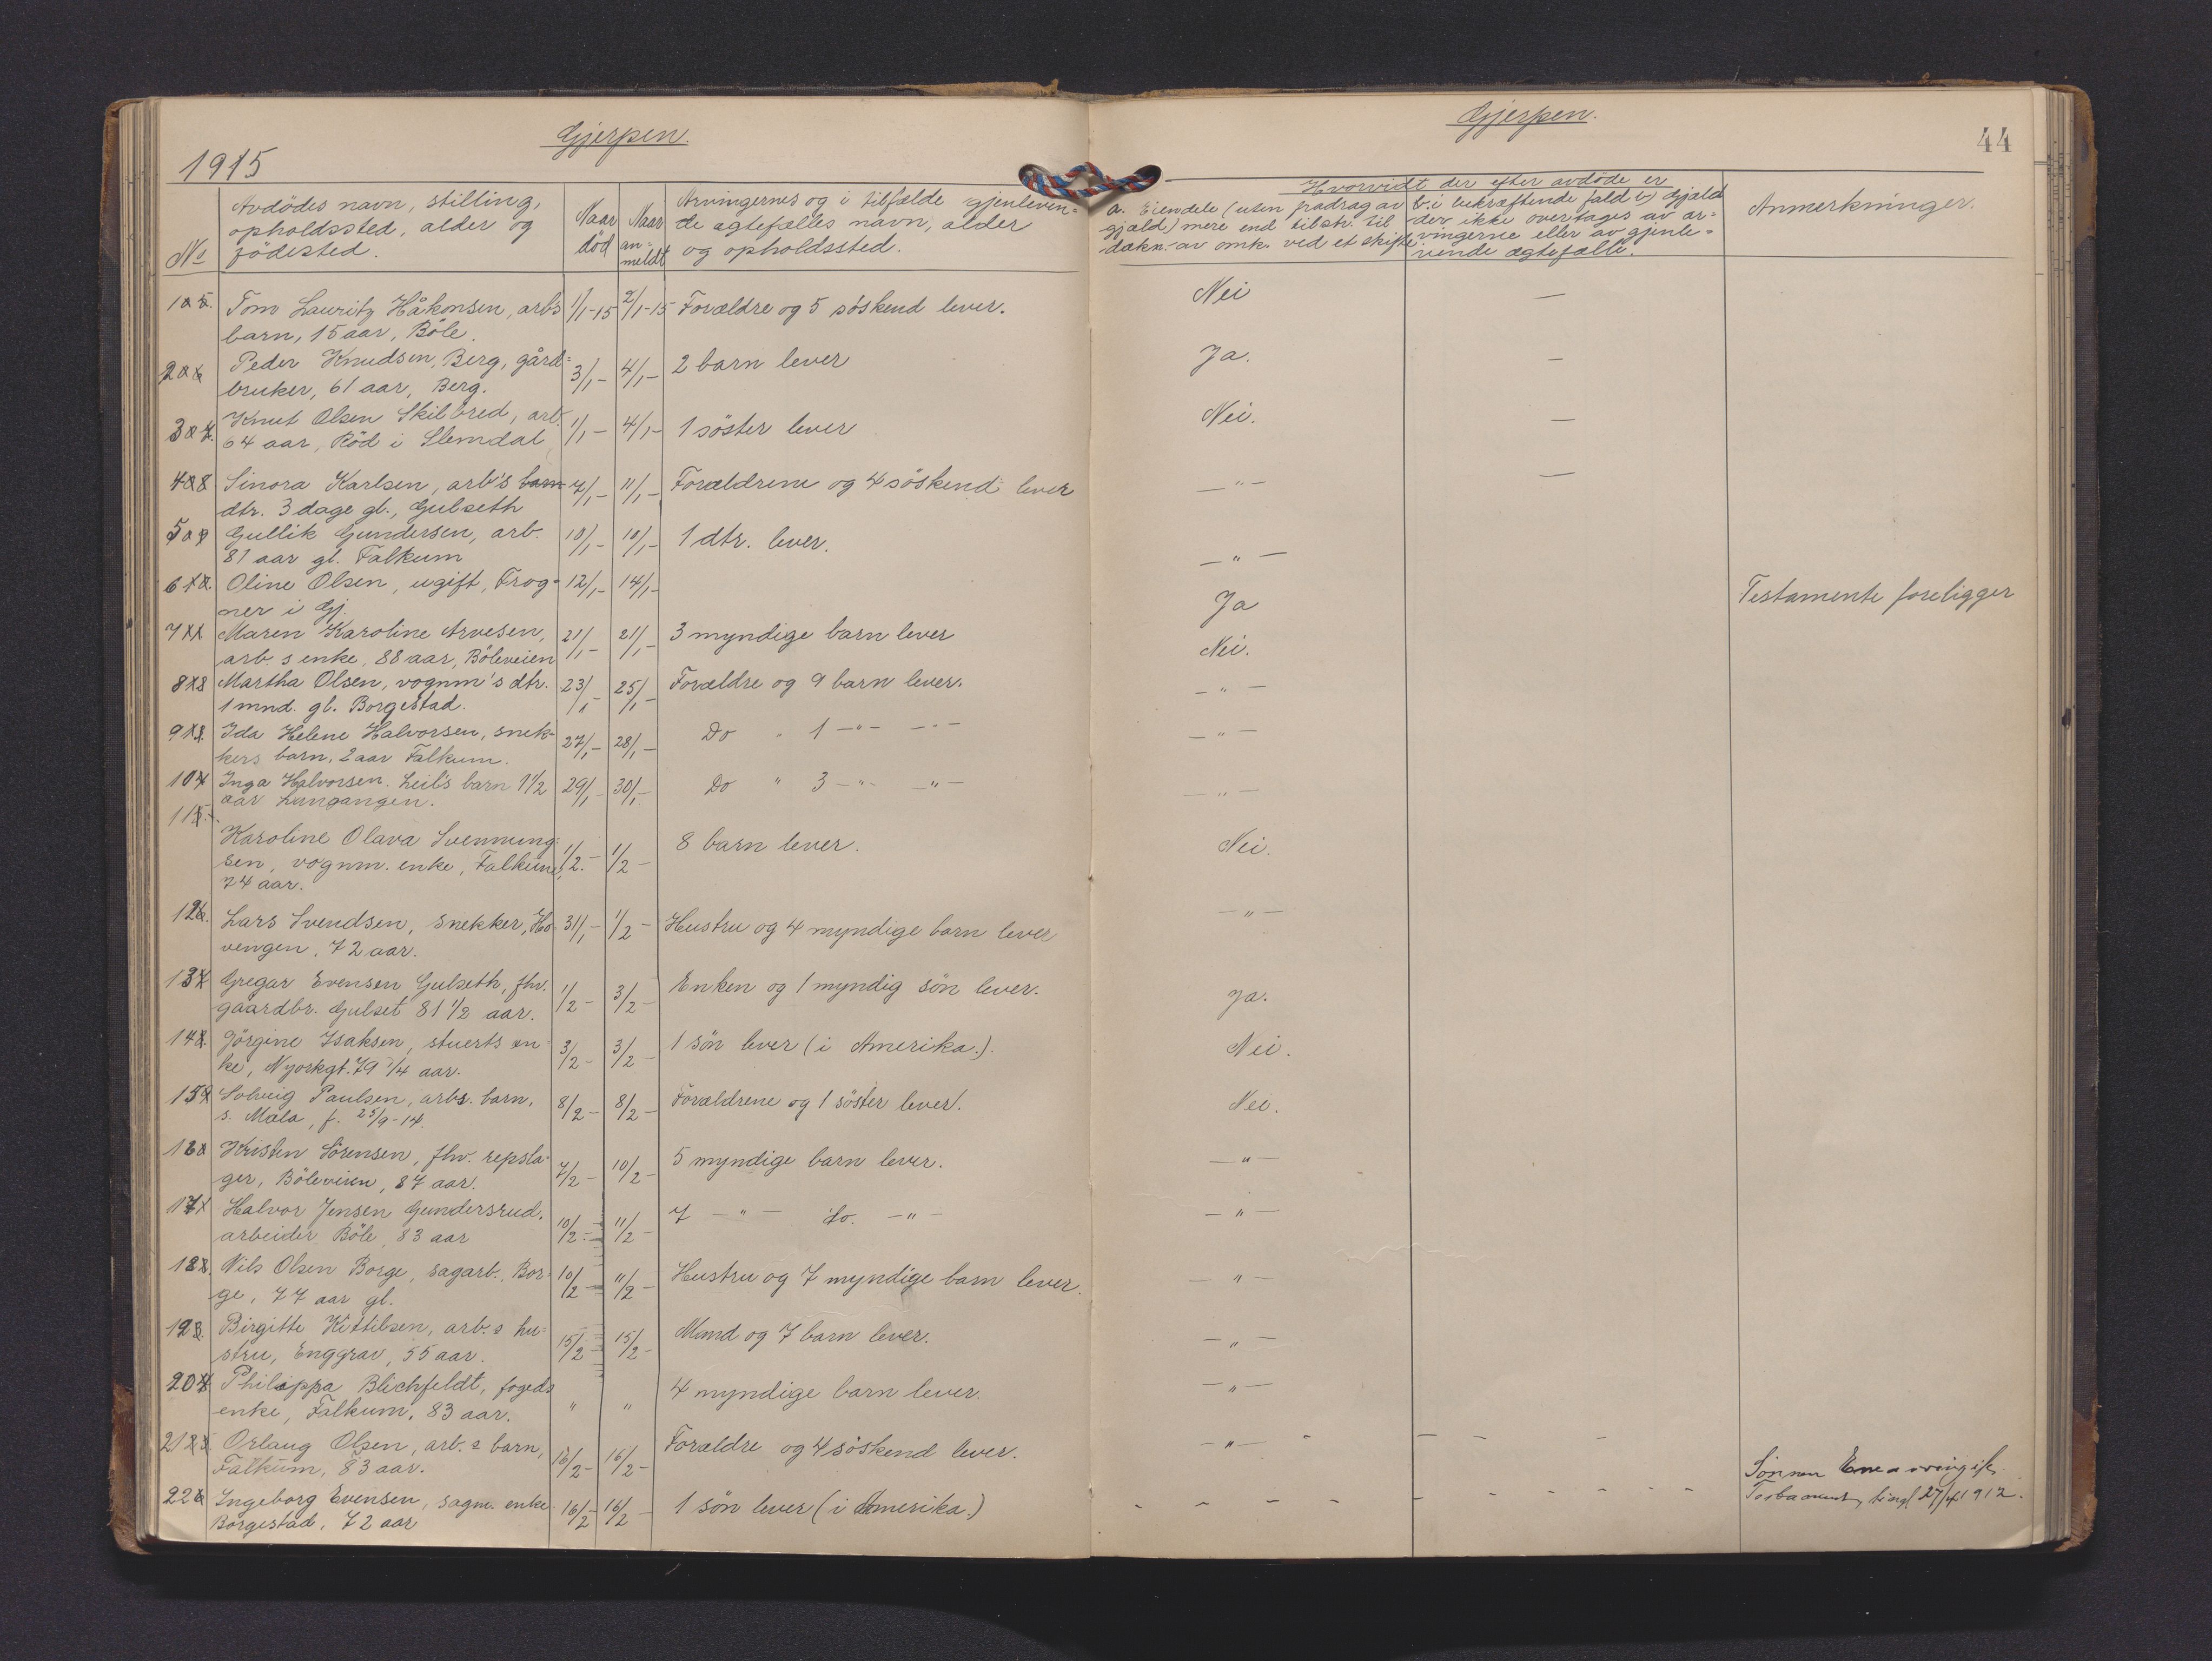 Gjerpen.
1915
No
Avdödes navn, stilling,
opholdssted, alder og
födested.
Naar
död
Naar
an=
meldt
Arvingernes og i tilfælde gjenleven=
de ægtefælles navn, alder
og opholdssted.
Tom Lauritz Håkonsen, arbs
barn, 15 aar, Böle.
1/1-15 2/1-15 Forældre og 5 söskend lever.
2 Peder Knudsen, Berg, gård=
bruker, 61 aar, Berg.
3/1 - 4/1 - 2 barn lever
3 Knut Olsen Skilbred, arb.
64 aar, Röd i Slemdal
1/1 - 4/1 - 1 söster lever
4 Sinora Karlsen, arb's barn
dtr. 3 dage gl., Gulseth
7/1 - 11/1 - Forældrene og 4 söskend lever
5 Gullik Gundersen, arb.
81 aar gl. Falkum
10/1 - 10/1 - 1 dtr. lever.
6 Oline Olsen, ugift, Frog=
ner i Gj.
12/1 - 14/1 -
7 Maren Karoline Arvesen,
arb. s enke, 88 aar, Böleveien
21/1 - 21/1 - 3 myndige barn lever
8 Martha Olsen, vognm's dtr.
1 mnd. gl. Borgestad.
23/1 - 25/1 - Forældre og 9 barn lever.
9 Ida Helene Halvorsen, snek-
kers barn, 2 aar Falkum.
27/1 - 28/1 - Do " 1 -"- -"-
10 Inga Halvorsen. Leil's barn 1 1/2
aar Langangen.
29/1 - 30/1 - Do " 3 -"- -"-
11
Karoline Olava Svennung
sen, vognm. enke, Falkum,
74 aar.
1/2 - 1/2 - 8 barn lever.
12 Lars Svendsen, snekker, Ho
vengen, 72 aar.
31/1 - 1/2 - Hustru og 4 myndige barn lever
13 Gregar Evensen Gulseth, fhv.
gaardbr. Gulset 81 1/2 aar.
1/2 - 3/2 - Enken og 1 myndig sön lever.
14 Jörgine Isaksen, stuerts en=
ke, Nyorkgt. 79 1/4 aar.
3/2 - 3/2 - 1 sön lever (i Amerika.).
15 Solveig Paulsen, arbs. barn,
s. Mæla, f. 25/9-14.
8/2 - 8/2 - Forældrene og 1 söster lever.
16 Kristen Sörensen, fhv. repsla=
ger, Böleveien, 87 aar.
7/2 - 10/2 - 5 myndige barn lever.
17 Halvor Jensen Gundersrud,
arbeider, Böle, 83 aar
10/2 - 11/2 - 7 -"- do. -"-
18 Nils Olsen Borge, sagarb., Bor=
ge, 77 aar gl.
10/2 - 11/2 - Hustru og 7 myndige barn lever.
19 Birgitte Kittilsen, arb. s hu=
stru, Enggrav, 55 aar.
15/2 - 15/2 - Mand og 7 barn lever.
20 Philippa Blichfeldt, fogeds
enke, Falkum, 83 aar.
" " 4 myndige barn lever.
21 Orlaug Olsen, arb. s barn,
Falkum, 83 aar.
16/2 - 16/2 - Forældre og 4 söskend lever.
22 Ingeborg Evensen, sagm. enke
Borgestad, 72 aar
16/2 - 16/2 - 1 sön lever (i Amerika.)
Gjerpen.
44
Hvorvidt der efter avdöde er
a. Eiendele (uten fradrag av
gjæld) mere end tilstr. til
dækn. av omk. ved et skifte.
b. i bekræftende fald er gjæld
der ikke overtages av ar=
vingerne eller av gjenle=
vende ægtefælle.
Anmerkninger.
Nei —
Ja. —
Nei. —
—"— —
—"—
Ja Testamente foreligger
Nei.
—"—
—"—
—"—
Nei.
—"—
Ja.
Nei.
Nei.
—"—
—"—
—"—
—"—
—"—
—"— - - - -
Sönnen
27/4 1912.